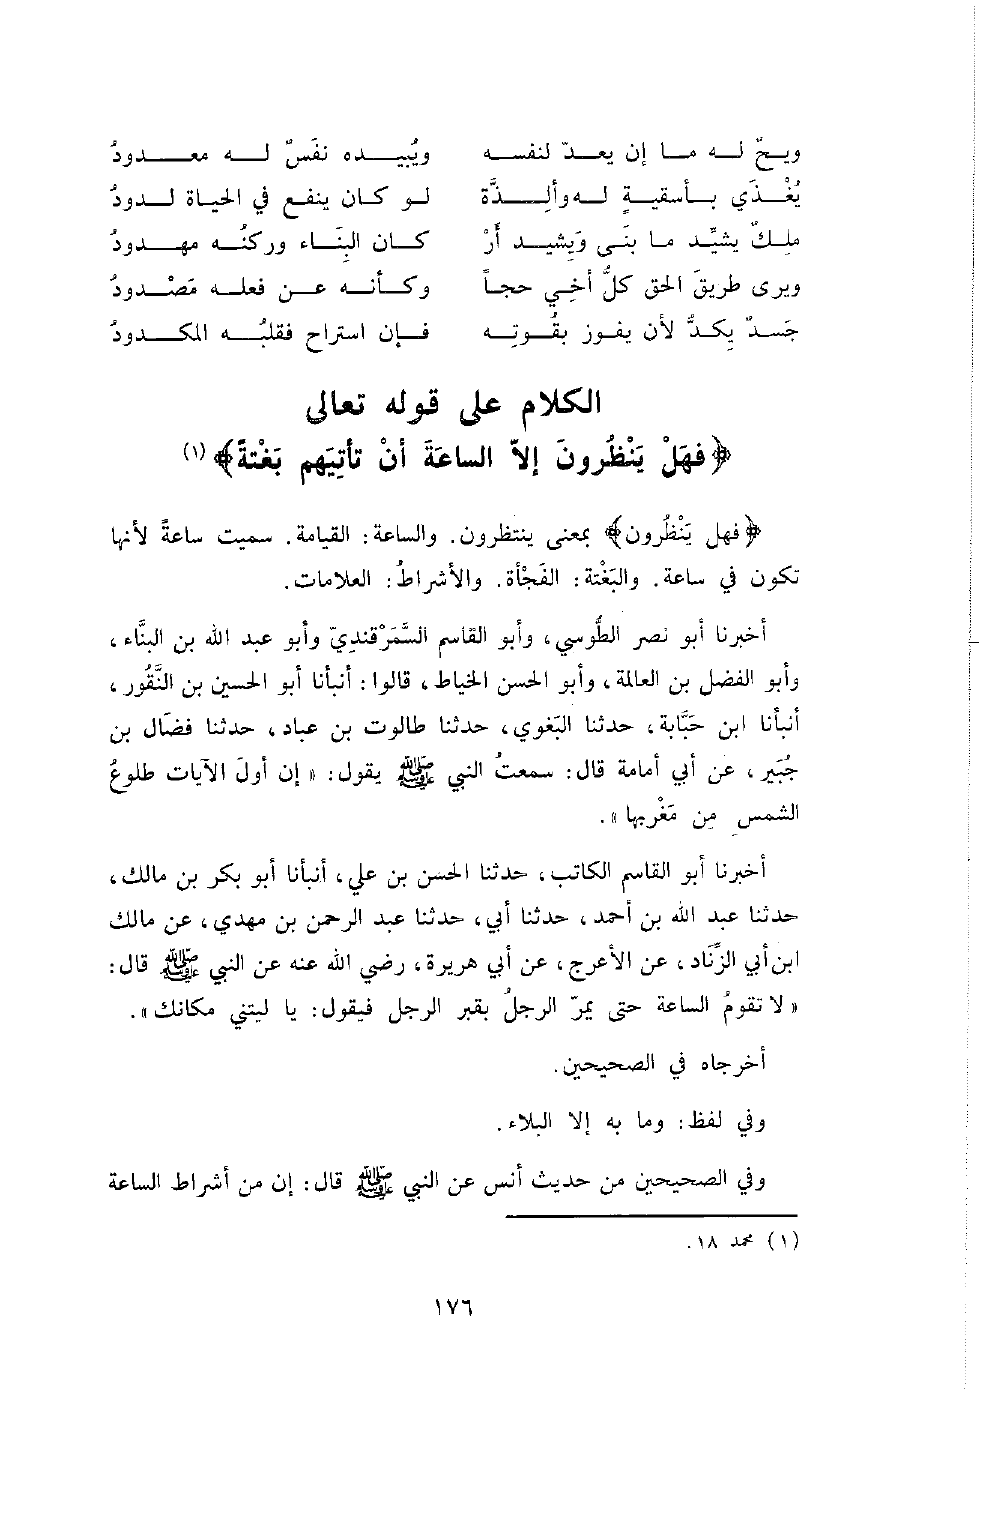 ويحٌ لـه مـا إن يعـدّ لنفسـه ويُبيـده نفَسٌ لـه معـدودُ
يُغْـذَي بـأسقيـةٍ لـه وألـذَّة لـو كـان ينفـع في الحيـاة لـدودُ
ملـكٌ يشيِّـد مـا بنَـى ويَشيـد أرْ كـان البنَـاء وركنُـه مهـدودُ
ويرى طريقَ الحق كلُّ أخِي حجـاً وكـأنـه عـن فعلـه مَصْـدودُ
جَسـدٌ يكـدُّ لأن يفـوز بقُـوتِـه فـإن استراح فقلبُـه المكـدودُ
الكلام على قوله تعالى
﴿فهَلْ يَنْظُرونَ إلاّ الساعَةَ أنْ تأتِيَهم بَغْتةً﴾ (١)
﴿فهل يَنْظُرون﴾ بمعنى ينتظرون. والساعة: القيامة. سميت ساعةً لأنها
تكون في ساعة. والبَغْتة: الفَجْأة. والأشراطُ: العلامات.
أخبرنا أبو نصر الطُّوسي، وأبو القاسم السَّمَرْقنديّ وأبو عبد الله بن البنَّاء،
وأبو الفضل بن العالمة، وأبو الحسن الخياط، قالوا: أنبأنا أبو الحسين بن النَّقُور،
أنبأنا ابن حَبَّابة، حدثنا البَغوي، حدثنا طالوت بن عباد، حدثنا فضّال بن
جُبَير، عن أبي أمامة قال: سمعتُ النبي ﷺ يقول: « إن أولَ الآيات طلوعُ
الشمس مِن مَغْربها ».
أخبرنا أبو القاسم الكاتب، حدثنا الحسن بن علي، أنبأنا أبو بكر بن مالك،
حدثنا عبد الله بن أحمد، حدثنا أبي، حدثنا عبد الرحمن بن مهدي، عن مالك
ابن أبي الزِّناد، عن الأعرج، عن أبي هريرة، رضي الله عنه عن النبي ﷺ قال:
« لا تقومُ الساعة حتى يمرّ الرجلُ بقبر الرجل فيقول: يا ليتني مكانك ».
أخرجاه في الصحيحين.
وفي لفظ: وما به إلا البلاء.
وفي الصحيحين من حديث أنس عن النبي ﷺ قال: إن من أشراط الساعة
(١) محمد ١٨.
١٧٦